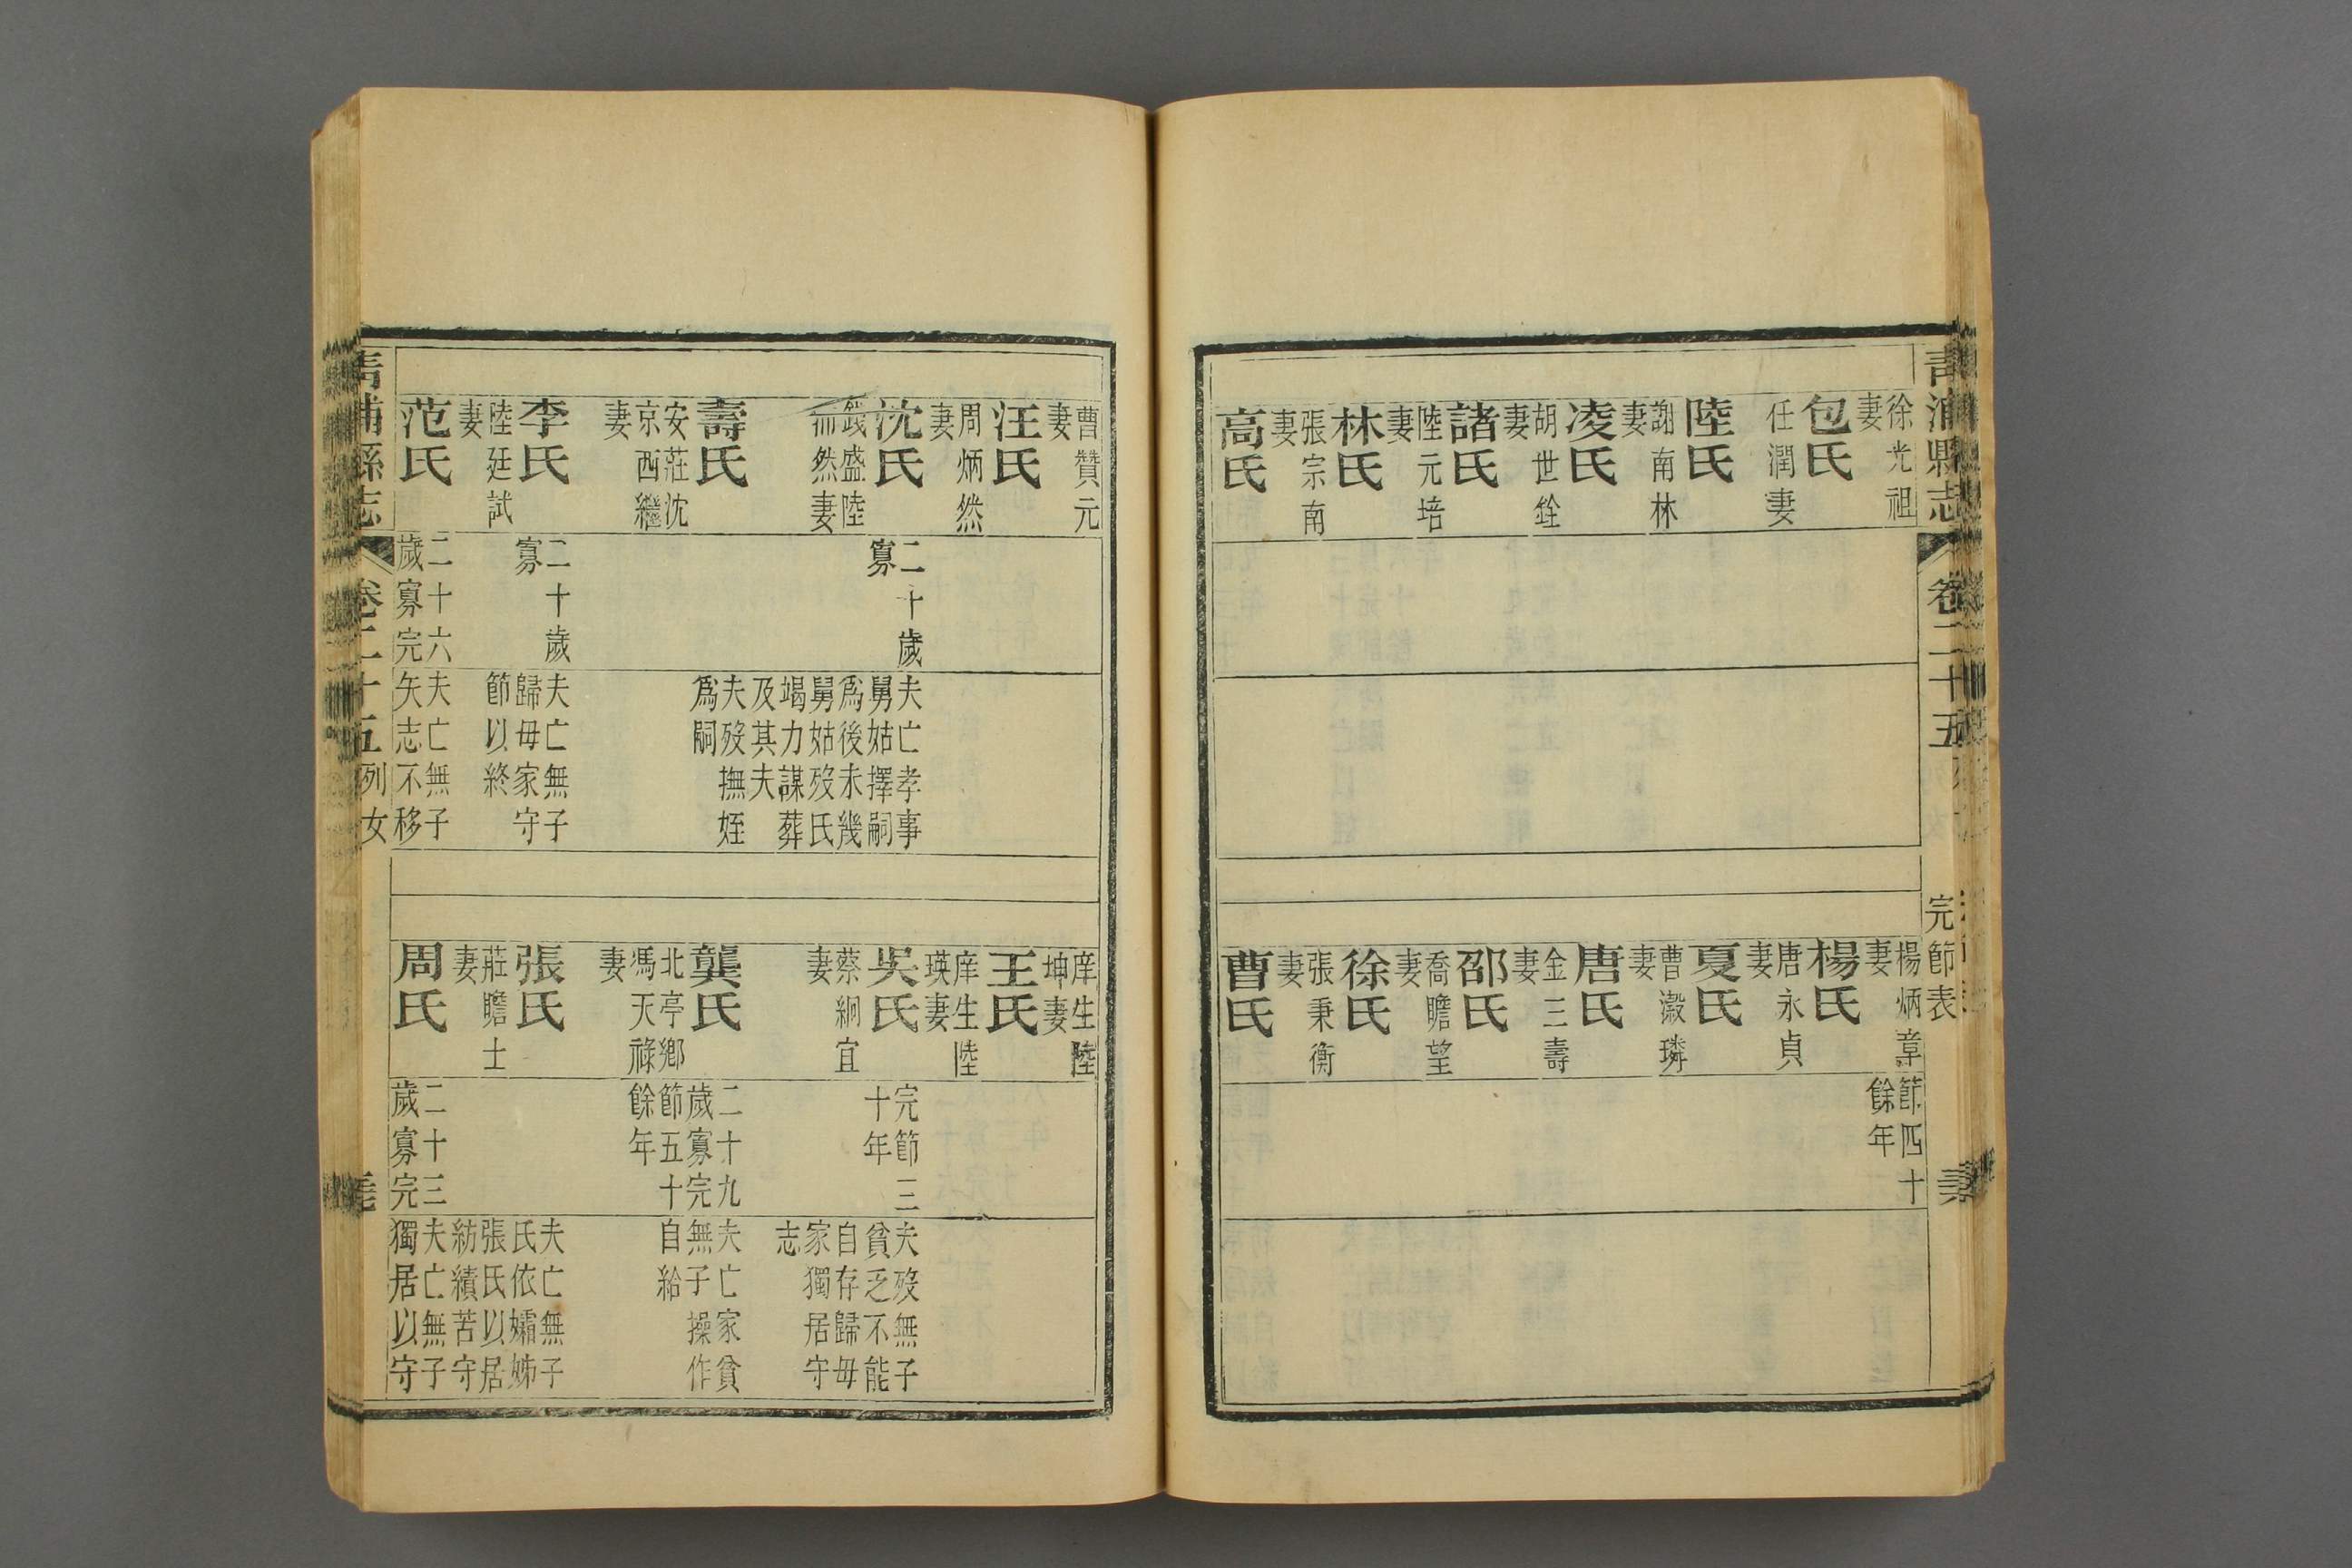 青浦縣志
卷二十五
完節表
徐光祖
妻
包氏
任潤妻
陸氏
謝南林
妻
凌氏
胡世銓
妻
諸氏
陸元培
妻
林氏
張宗南
妻
高氏
楊炳章
妻
節四十
餘年
楊氏
唐永貞
妻
夏氏
曹漵璘
妻
唐氏
金三壽
妻
邵氏
喬瞻望
妻
徐氏
張秉衡
妻
曹氏
曹贊元
妻
汪氏
周炳然
妻
沈氏
二十歲
寡
夫亡孝事
舅姑擇嗣
爲後未幾
舅姑歿氏
竭力謀葬
及其夫
盛陸
然妻
壽氏
夫歿撫姪
爲嗣
安莊沈
京西繼
妻
李氏
二十歲
寡
夫亡無子
歸母家守
節以終
陸廷試
妻
范氏
二十六
歲寡完
夫亡無子
矢志不移
庠生陸
坤妻
王氏
庠生陸
瑛妻
吳氏
完節三
十年
夫歿無子
貧乏不能
自存歸母
家獨居守
志
蔡絅宜
妻
龔氏
二十九
歲寡完
節五十
餘年
夫亡家貧
無子操作
自給
北亭鄉
馮天祿
妻
張氏
夫亡無子
氏依孀姊
張氏以居
紡績苦守
莊瞻士
妻
周氏
二十三
歲寡完
夫亡無子
獨居以守
青浦縣志
卷二十五
列女